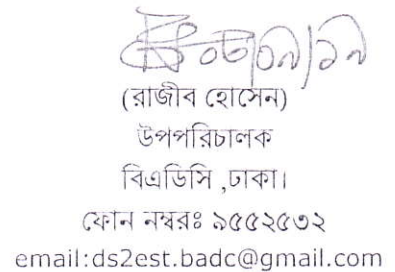 ০৮/০৯/১৯
(রাজীব হোসেন)
উপপরিচালক
বিএডিসি ,ঢাকা।
ফোন নম্বরঃ ৯৫৫২৫৩২
email:ds2est.badc@gmail.com